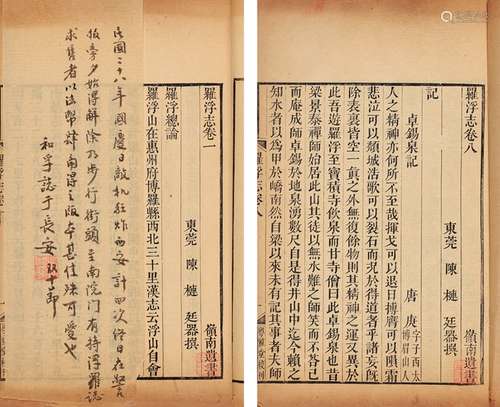 羅浮志卷一 嶺南遺書
東莞 陳槤 廷器撰
羅浮總論
羅浮山在惠州府博羅縣西北三十里漢志云浮山自會
民國二十八年國慶日敵机狂炸西安計四次終日在警
报旁夕始得解除乃步行街頭至南院门有持浮羅誌
求售者以法幣肆角得之版本甚佳殊可愛也
和孚誌于長安 双十節
羅浮志卷八 嶺南遺書
東莞 陳槤 廷器撰
記
卓錫泉記 唐庚 字子西太博眉山人
人之精神亦何所不至哉揮戈可以退日搏膺可以隕霜
悲泣可以頹城浩歌可以裂石而況於得道者乎諸妄既
除表裏皆空一眞之外無復餘物則其精神之運又異於
此吾遊羅浮至寶積寺飲泉而甘寺僧曰此卓錫泉也昔
梁景泰禪師始居此山其徒以無水難之師笑而不荅已
而庵成師卓錫於地泉湧數尺自是得井山中迄今賴之
知水者以為甲於嶺南然自梁以來未有記其事者夫師
羅浮志卷八